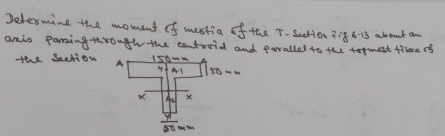 Determine the moment of inertia of the T-Section fig 6.13 about an
axis passing through the centroid and parallel to the topmost fibre of
the Section
150mm
A A
Y A1 150mm
X X
A2
Y
50mm